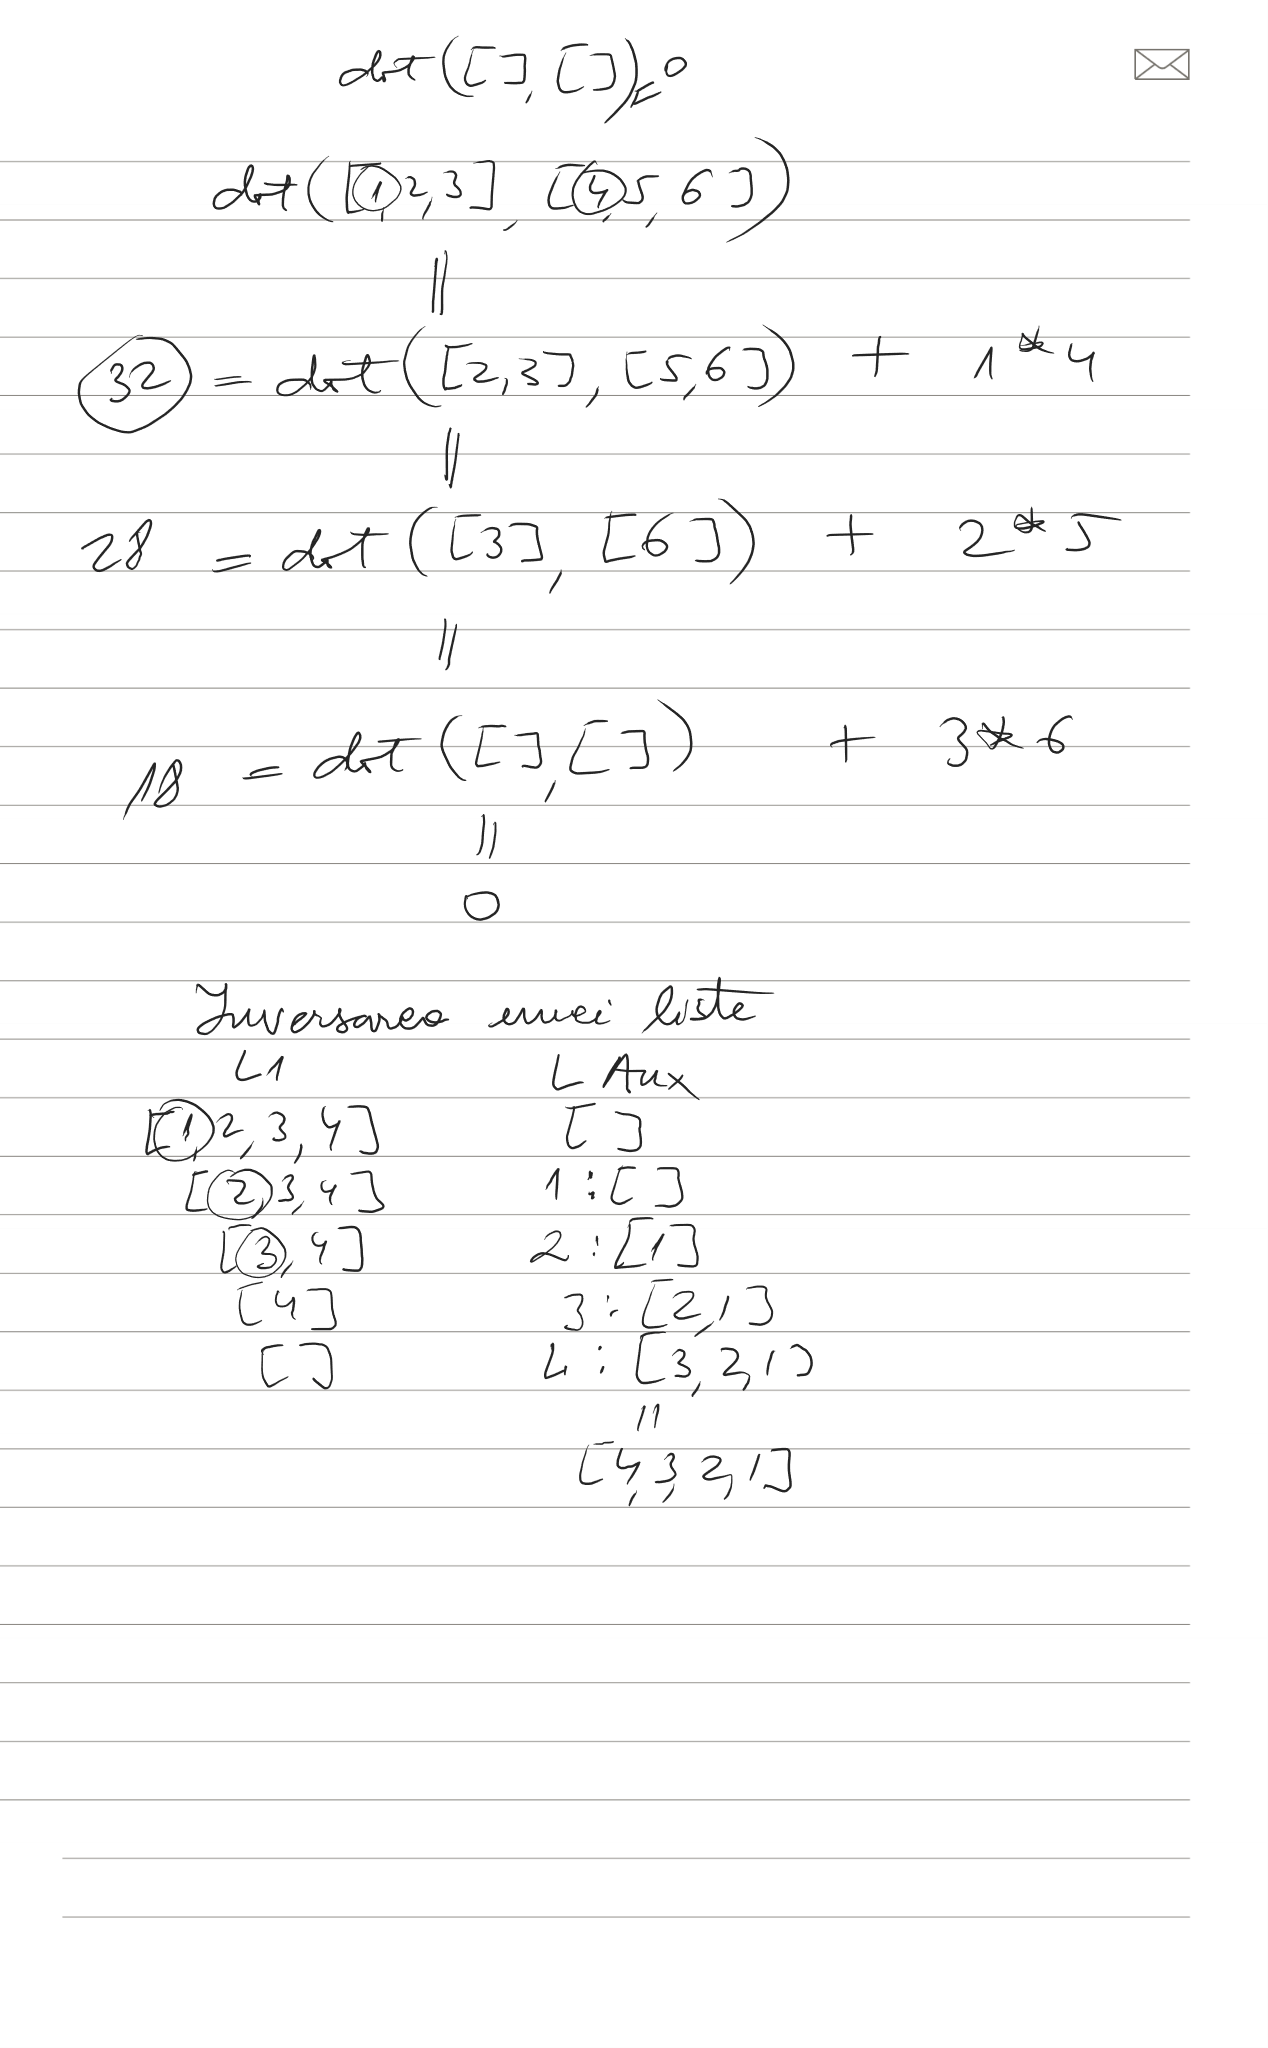 dot([], [])=0
dot([1,2,3], [4,5,6])
||
32 = dot([2,3], [5,6]) + 1*4
||
28 = dot([3], [6]) + 2*5
||
18 = dot([], []) + 3*6
||
0
Inversarea unei liste
L1 L Aux
[1,2,3,4] []
[2,3,4] 1:[]
[3,4] 2:[1]
[4] 3:[2,1]
[] 4:[3,2,1]
||
[4,3,2,1]